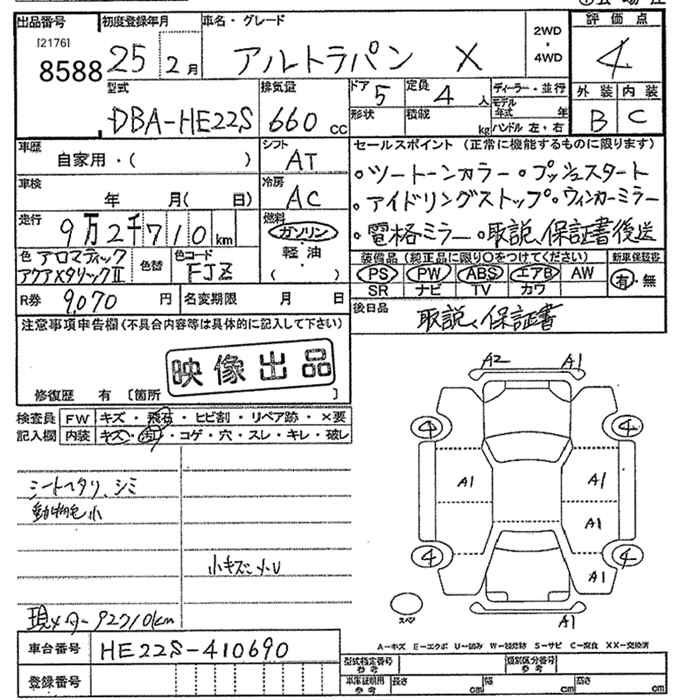 出品番号 初度登録年月 車名・グレード 2WD・4WD 評価点
[2176]
8588 25 2月 アルトラパン X 4
型式 排気量 ドア 5 定員 4人 ディーラー・並行 外装 内装
DBA-HE22S 660cc 形状 積載 kg モデル年式 年 ハンドル 左・右 B C
車歴 自家用・( ) シフト AT セールスポイント (正常に機能するものに限ります)
・ツートーンカラー ・プッシュスタート
車検 年 月( 日) 冷房 AC ・アイドリングストップ・ウィンカーミラー
走行 9万2千710km 燃料 ガソリン・軽油・( ) ・電格ミラー ・取説、保証書後送
色 アロマティックアクアメタリックII 色替 色コード FJZ 装備品 (純正品に限り○をつけてください) 新車保証書
PS PW ABS エアB AW 有・無
SR ナビ TV カワ
R券 9,070円 名変期限 月 日 後日品 取説、保証書
注意事項申告欄(不具合内容等は具体的に記入して下さい)
映像出品
修復歴 有 [箇所 ]
検査員記入欄 FW キズ・飛石・ヒビ割・リペア跡・×要
内装 キズ・汚れ・コゲ・穴・スレ・キレ・破レ
シートヘタリ、シミ
動物毛小
小キズ
現メーター92710km
A2 A1
4 4
A1 A1
A1
4 4
A1
A1
A-キズ E-エクボ U-凹み W-補修跡 S-サビ C-腐食 XX-交換済
車台番号 HE22S-410690
登録番号
型式指定番号 参考 類別区分番号 参考
車庫証明用 参考 長さ cm 幅 cm 高さ cm